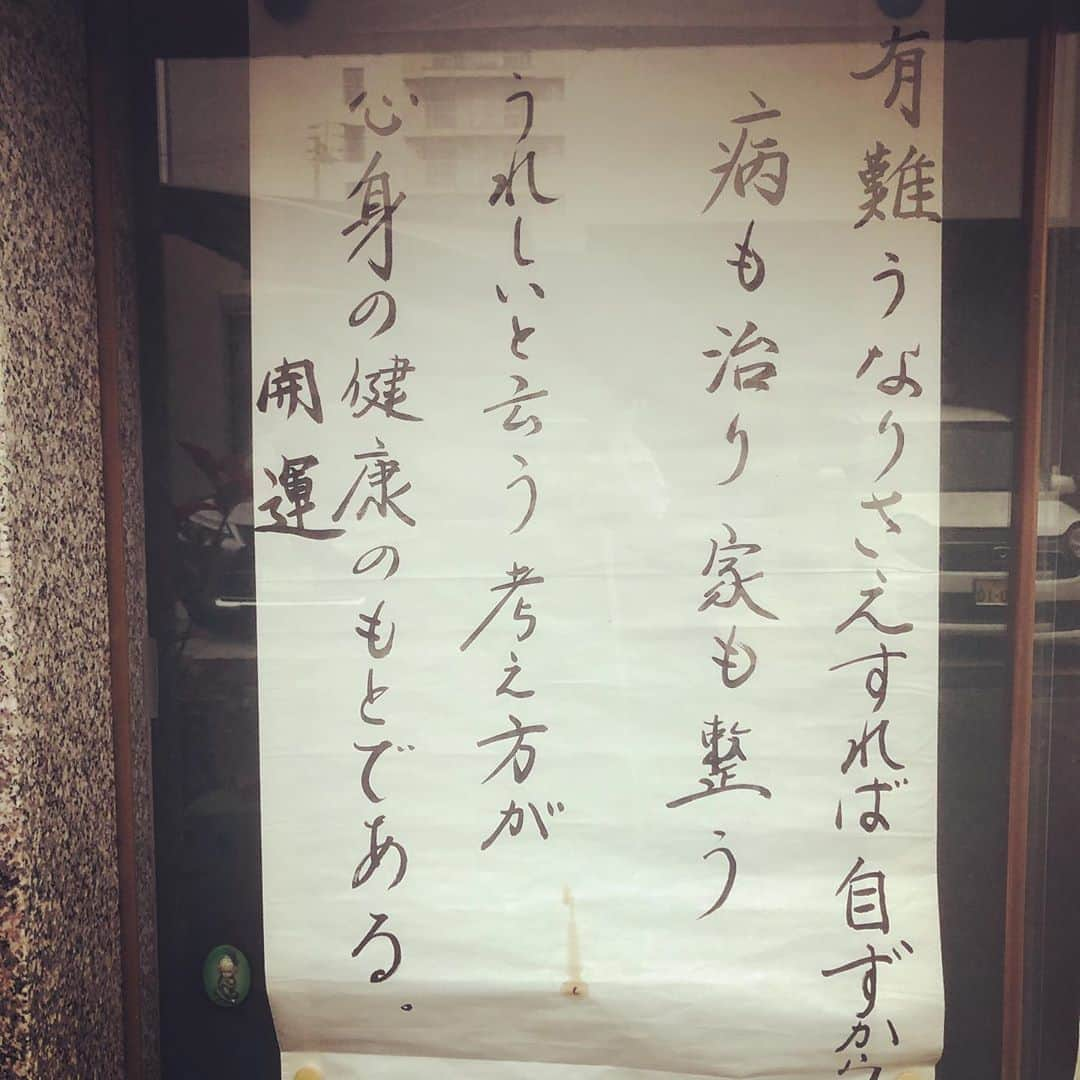 有難うなりさえすれば自ずから
病も治り家も整う
うれしいと云う考え方が
心身の健康のもとである。
開運